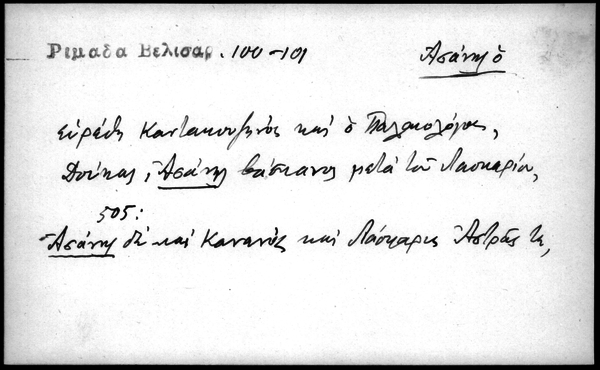 Ριμαδα Βελισαρ. 100-101 Ἀσάνης ὁ
Εὑρέθη Καντακουζηνός καὶ ὁ Παλαιολόγος,
Δούκας, Ἀσάνης βάσκανος μετὰ τοῦ Λασκαρίου,
505:
Ἀσάνης δὲ καὶ Κανανός καὶ Λάσκαρις Ἀστρᾶς τε,